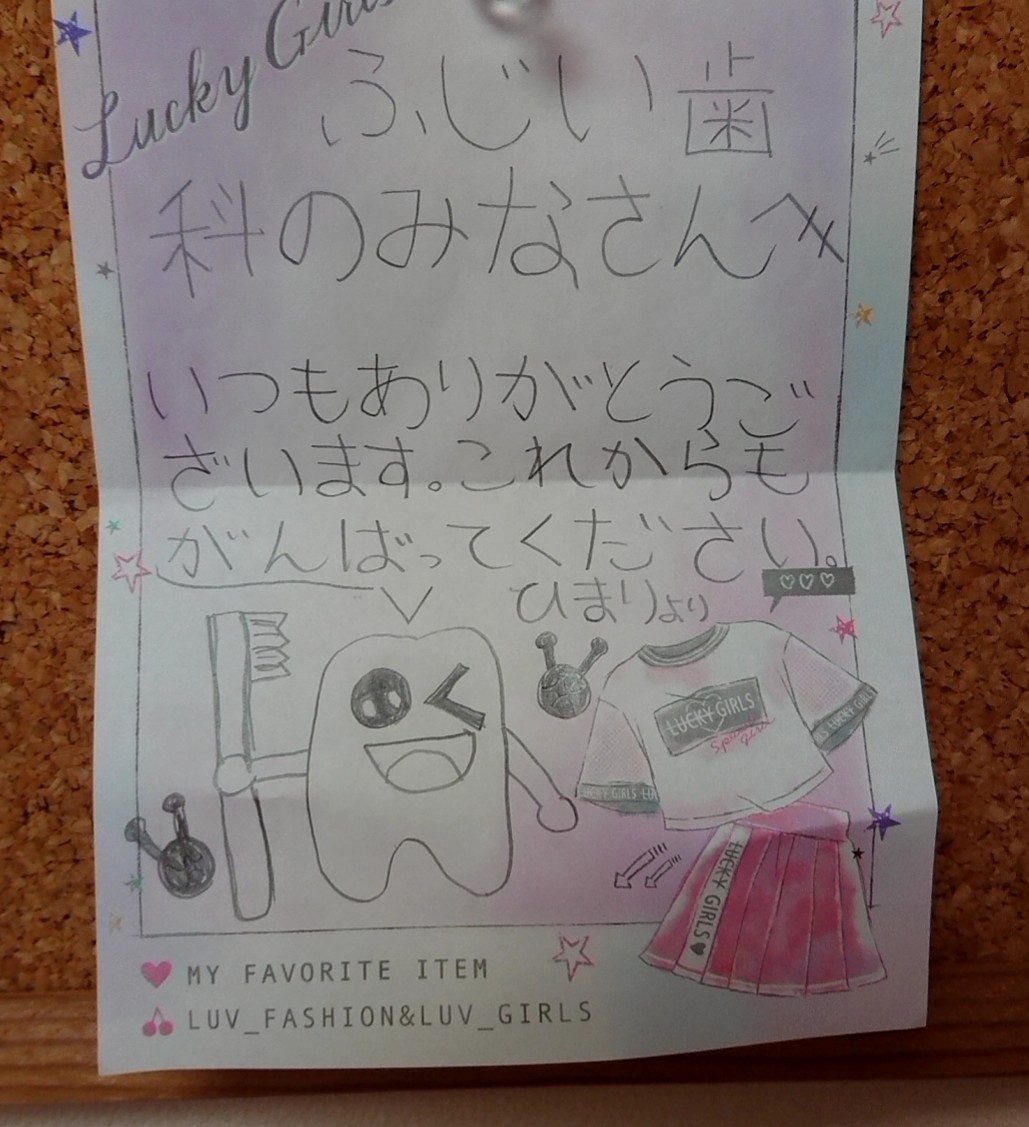 Lucky Girls
ふじい歯
科のみなさんへ
いつもありがとうご
ざいます。これからも
がんばってください。
ひまりより
LUCKY GIRLS
LUCKY GIRLS
LUCKY GIRLS
LUCKY GIRLS
MY FAVORITE ITEM
LUV_FASHION&LUV_GIRLS